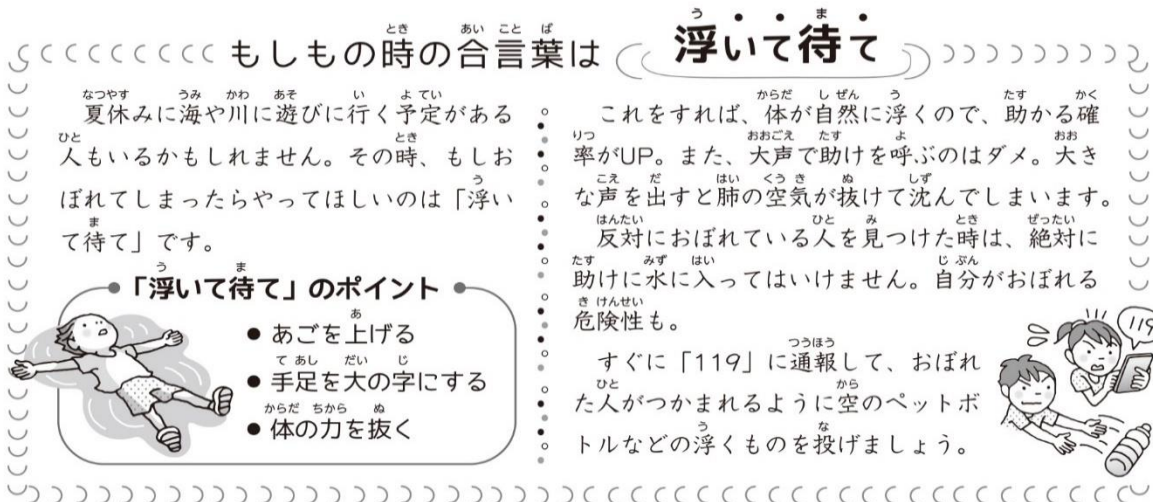 もしもの時の合言葉は 浮いて待て
夏休みに海や川に遊びに行く予定がある
人もいるかもしれません。その時、もしお
ぼれてしまったらやってほしいのは「浮い
て待て」です。
「浮いて待て」のポイント
● あごを上げる
● 手足を大の字にする
● 体の力を抜く
これをすれば、体が自然に浮くので、助かる確
率がUP。また、大声で助けを呼ぶのはダメ。大き
な声を出すと肺の空気が抜けて沈んでしまいます。
反対におぼれている人を見つけた時は、絶対に
助けに水に入ってはいけません。自分がおぼれる
危険性も。
すぐに「119」に通報して、おぼれ
た人がつかまれるように空のペットボ
トルなどの浮くものを投げましょう。
119